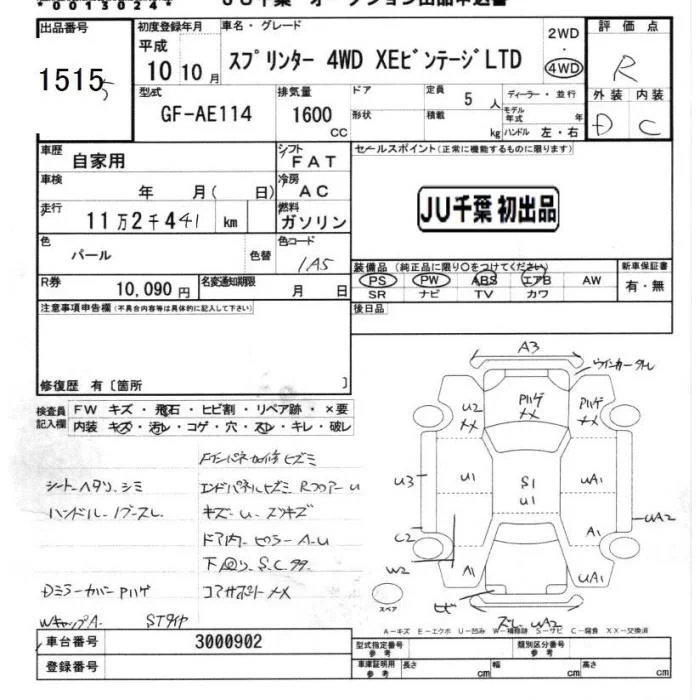 *00130244*
JU千葉 オークション出品申込書
出品番号 初度登録年月 車名・グレード 2WD・4WD 評価点
1515 5 平成10 10月 スプリンター 4WD XEビンテージLTD R
型式 排気量 ドア 定員 5人 ディーラー・並行 外装 内装
GF-AE114 1600cc 形状 積載 kg モデル年式 年 ハンドル 左・右 D C
車歴 自家用 シフト FAT セールスポイント(正常に機能するものに限ります)
車検 年 月( 日) 冷房 AC
走行 11万2千441 km 燃料 ガソリン JU千葉 初出品
色 パール 色替 色コード 1A5
装備品(純正品に限り○をつけてください) 新車保証書
R券 10,090円 名変通知期限 月 日 PS PW ABS エアB AW 有・無
SR ナビ TV カワ
注意事項申告欄(不具合内容等は具体的に記入して下さい) 後日品
修復歴 有〔箇所 〕
検査員記入欄 FW キズ・飛石・ヒビ割・リペア跡・×要
内装 キズ・汚レ・コゲ・穴・スレ・キレ・破レ
シートヘタリ、シミ エンドパネルヒズミ Rフロアー U
ハンドル・ノブスレ キズ・U・スリキズ
ドア内・ピラー A-U
下回り S.C.
Dミラーカバー Pハゲ コアサポート XX
WキャップA STタイヤ
A3 ウインカー
U2 XX Pハゲ XX Pハゲ XX
U3 U1 S1 U1 UA1
C2 A1 UA2
W2 A1 UA1
スペア ヒビ スレ UA2
A-キズ E-エクボ U-凹み W-補修跡 S-サビ C-腐食 XX-交換済
車台番号 3000902 型式指定番号 参考 類別区分番号 参考
登録番号 車庫証明用 参考 長さ cm 幅 cm 高さ cm